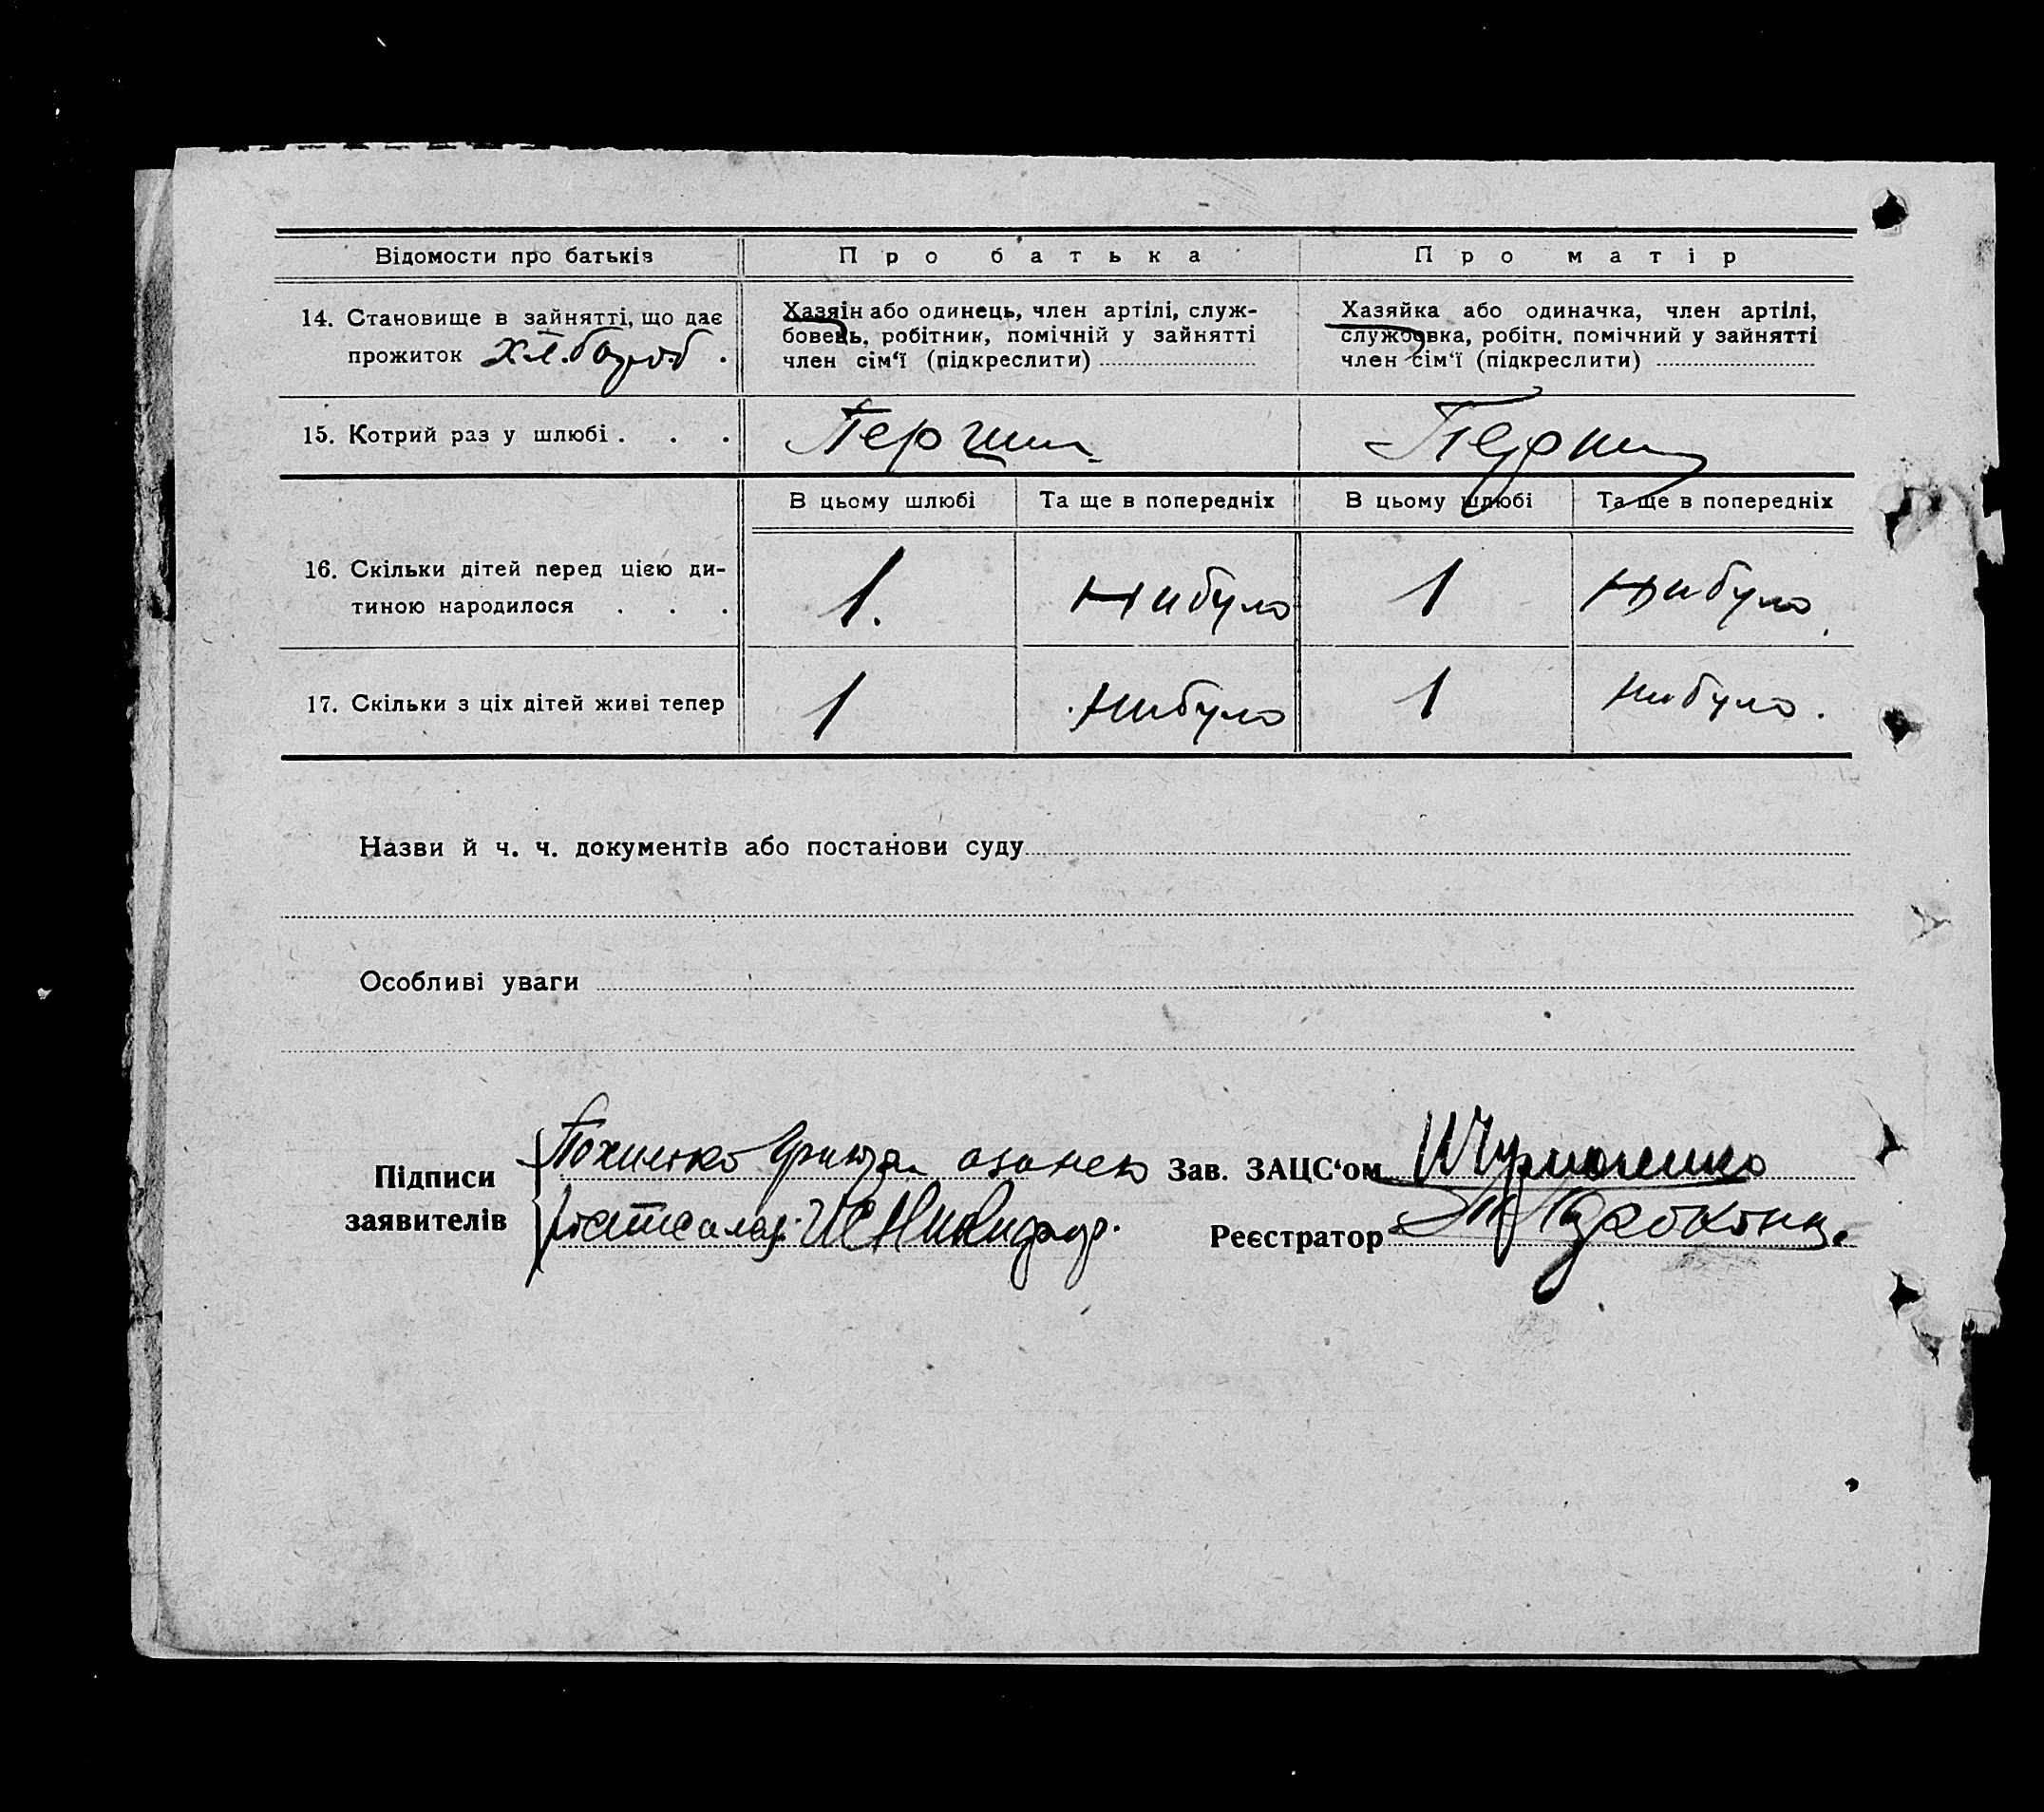 Відомости про батьків
Про батька
Про матір
14. Становище в зайнятті, що дає
прожиток Хлібороб.
Хазяїн або одинець, член артілі, служ-
бовець, робітник, помічній у зайнятті
член сім'ї (підкреслити)
Хазяйка або одиначка, член артілі,
службовка, робітн. помічний у зайнятті
член сім'ї (підкреслити)
15. Котрий раз у шлюбі . . .
Перший
Перший
В цьому шлюбі
Та ще в попередніх
В цьому шлюбі
Та ще в попередніх
16. Скільки дітей перед цією ди-
тиною народилося . . .
1.
Нибуло
1
Нибуло
17. Скільки з ціх дітей живі тепер
1
Нибуло
1
Нибуло.
Назви й ч. ч. документів або постанови суду
Особливі уваги
Підписи
заявителів
Похилько
Зав. ЗАЦС'ом
Реєстратор